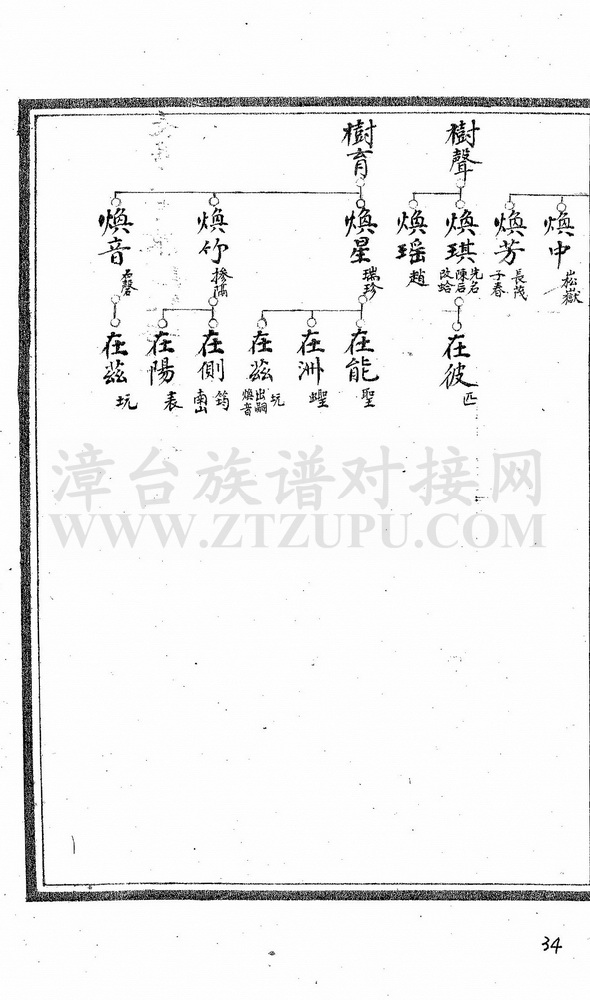 樹聲
樹育
煥中
崧嶽
煥芳
長茂
子春
煥琪
先名
陳后
改蛤
煥瑶
趙
煥星
瑞珍
煥竹
煥音
在彼
匹
在能
聖
在洲
蟶
在茲
坑
出嗣
煥音
在側
筠
南山
在陽
表
在茲
坑
漳台族谱对接网
WWW.ZTZUPU.COM
34